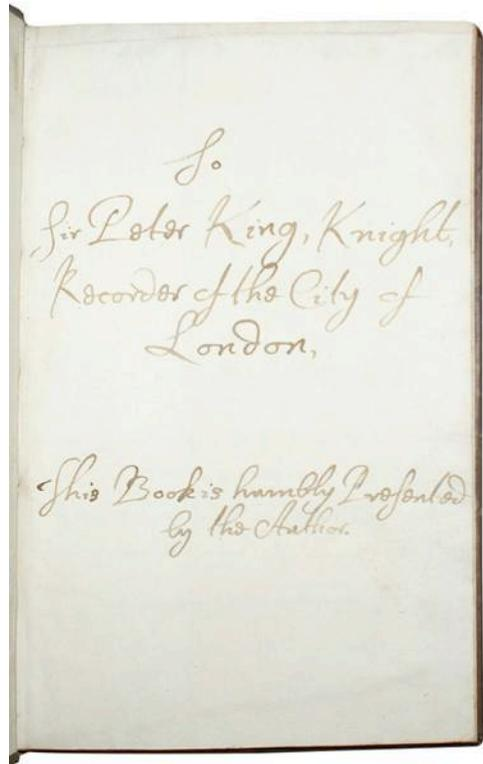 To
Sir Peter King, Knight,
Recorder of the City of
London,
This Book is humbly Presented
by the Author.